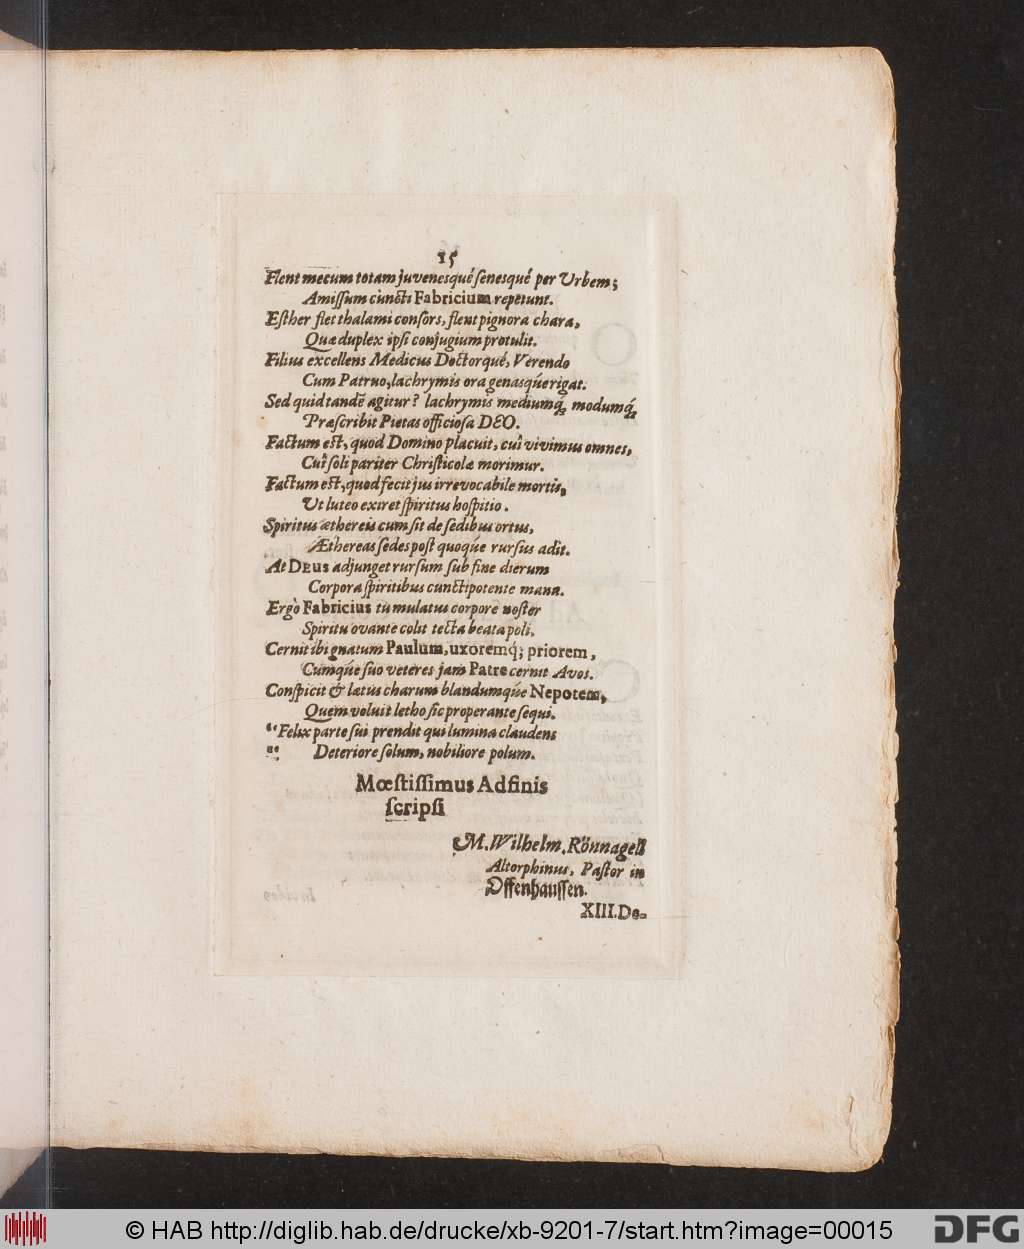 15
Flent mecum totam juvenesqué ſenesqué per Urbem;
Amiſſum cùncti Fabricium repetunt.
Eſther flet thalami conſors, flent pignora chara,
Quæ duplex ipſi conjugium protulit.
Filius excellens Medicus Doctorqué, Verendo
Cum Patruo, lachrymis ora genasqúe rigat.
Sed quid tandẽ agitur? lachrymis mediumq́; modumq́;
Præſcribit Pietas officioſa DEO.
Factum eſt, quod Domino placuit, cuî vivimus omnes,
Cuî ſoli pariter Chriſticolæ morimur.
Factum eſt, quod fecit jus irrevocabile mortis,
Ut luteo exiret ſpiritus hoſpitio.
Spiritus æthereis cum ſit de ſedibus ortus,
Æthereas ſedes poſt quoqúe rurſus adit.
At DEUS adjunget rurſum ſub fine dierum
Corpora ſpiritibus cunctipotente manu.
Ergò Fabricius tumulatus corpore noſter
Spiritu ovante colit tecta beata poli.
Cernit ibi gnatum Paulum, uxoremq́; priorem,
Cumqúe ſuo veteres jam Patre cernit Avos.
Conſpicit & lætus charum blandumqúe Nepotem,
Quem voluit letho ſic properante ſequi.
“Felix parte ſui prendit qui lumina claudens
“ Deteriore ſolum, nobiliore polum.
Mœſtiſſimus Adfinis
ſcripſi
M. Wilhelm. Rönnagell
Altorphinus, Paſtor in
Offenhauſſen.
XIII. De-
© HAB http://diglib.hab.de/drucke/xb-9201-7/start.htm?image=00015
DFG